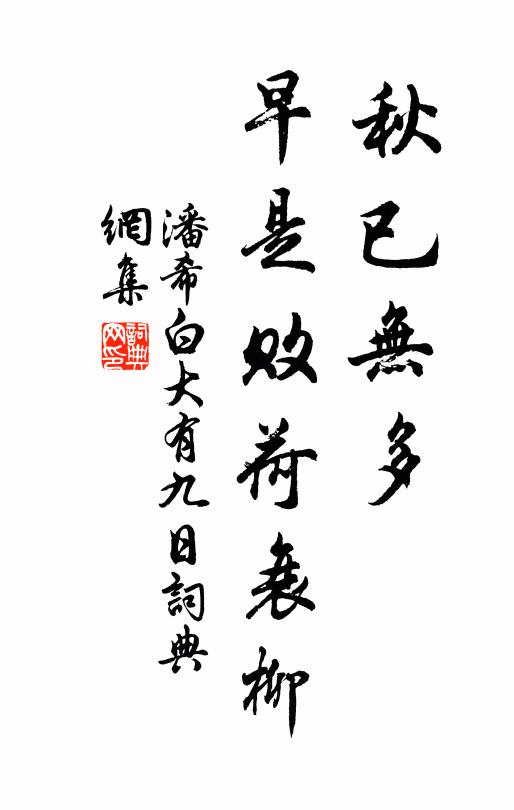 秋已無多
早是敗荷衰柳
潘希白大有九日詞典
網集
詞典網印